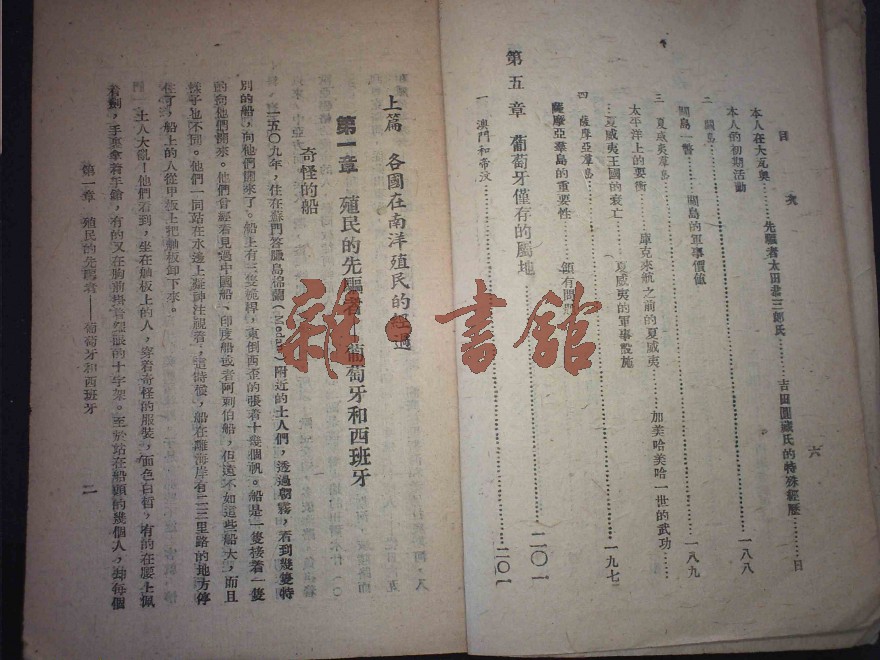 目次
六
本人在大瓦奧……先驅者太田恭三郎氏……吉田圓藏氏的特殊經歷……日
本人的初期活動……一八八
二 關島……一八九
關島一瞥……關島的軍事價値
三 夏威夷羣島
太平洋上的要衝……庫克來航之前的夏威夷……加美哈美哈一世的武功
…夏威夷王國的衰亡……夏威夷的軍事設施
四 薩摩亞羣島……一九七
薩摩亞羣島的重要性……領有問題
第五章 葡萄牙僅存的屬地……二〇一
一 澳門和帝汶……二〇一
上篇 各國在南洋殖民的經過
第一章 殖民的先驅者—葡萄牙和西班牙
奇怪的船
一五〇九年，住在蘇門答臘島棉蘭（Medan）附近的土人們，透過朝霧，看到幾隻特
別的船，向牠們開來了。船上有三隻桅桿，東倒西歪的張着十幾個帆。船是一隻接着一隻
的向他們開來。他們曾經看見過中國船、印度船或者阿剌伯船，但遠不如這些船大，而且
樣子也不同。他們一同站在水邊上凝神注視着，這時候，船在離海岸有二三里路的地方停
住了，船上的人從甲板上把舢板卸下來。
土人大亂！他們看到，坐在舢板上的人，穿着奇怪的服裝，面色白皙，有的在腰上佩
着劍，手裏拿着手鎗，有的又在胸前掛着 的十字架。至於站在船頭的幾個人，拗每個
第一章 殖民的先驅者——葡萄牙和西班牙
二
雜·書館